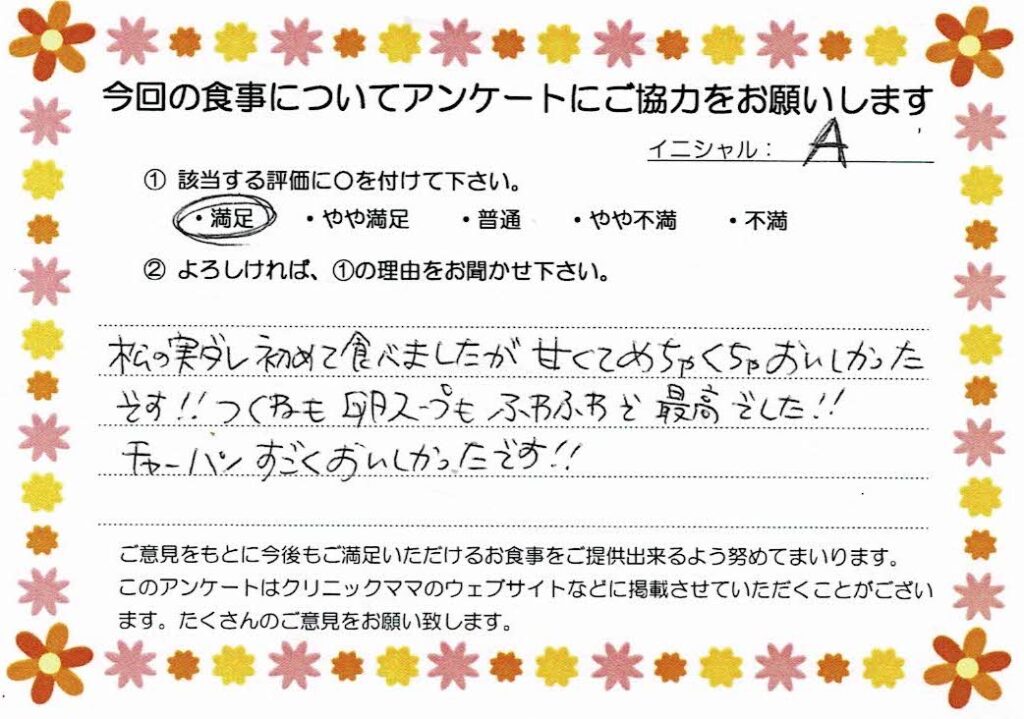 今回の食事についてアンケートにご協力をお願いします
イニシャル： A
① 該当する評価に○を付けて下さい。
・満足 ・やや満足 ・普通 ・やや不満 ・不満
② よろしければ、①の理由をお聞かせ下さい。
松の実ダレ初めて食べましたが 甘くてめちゃくちゃおいしかった
です!! つくねも 卵スープも ふわふわで 最高でした!!
チャーハン すごくおいしかったです!!
ご意見をもとに今後もご満足いただけるお食事をご提供出来るよう努めてまいります。
このアンケートはクリニックママのウェブサイトなどに掲載させていただくことがござい
ます。たくさんのご意見をお願い致します。